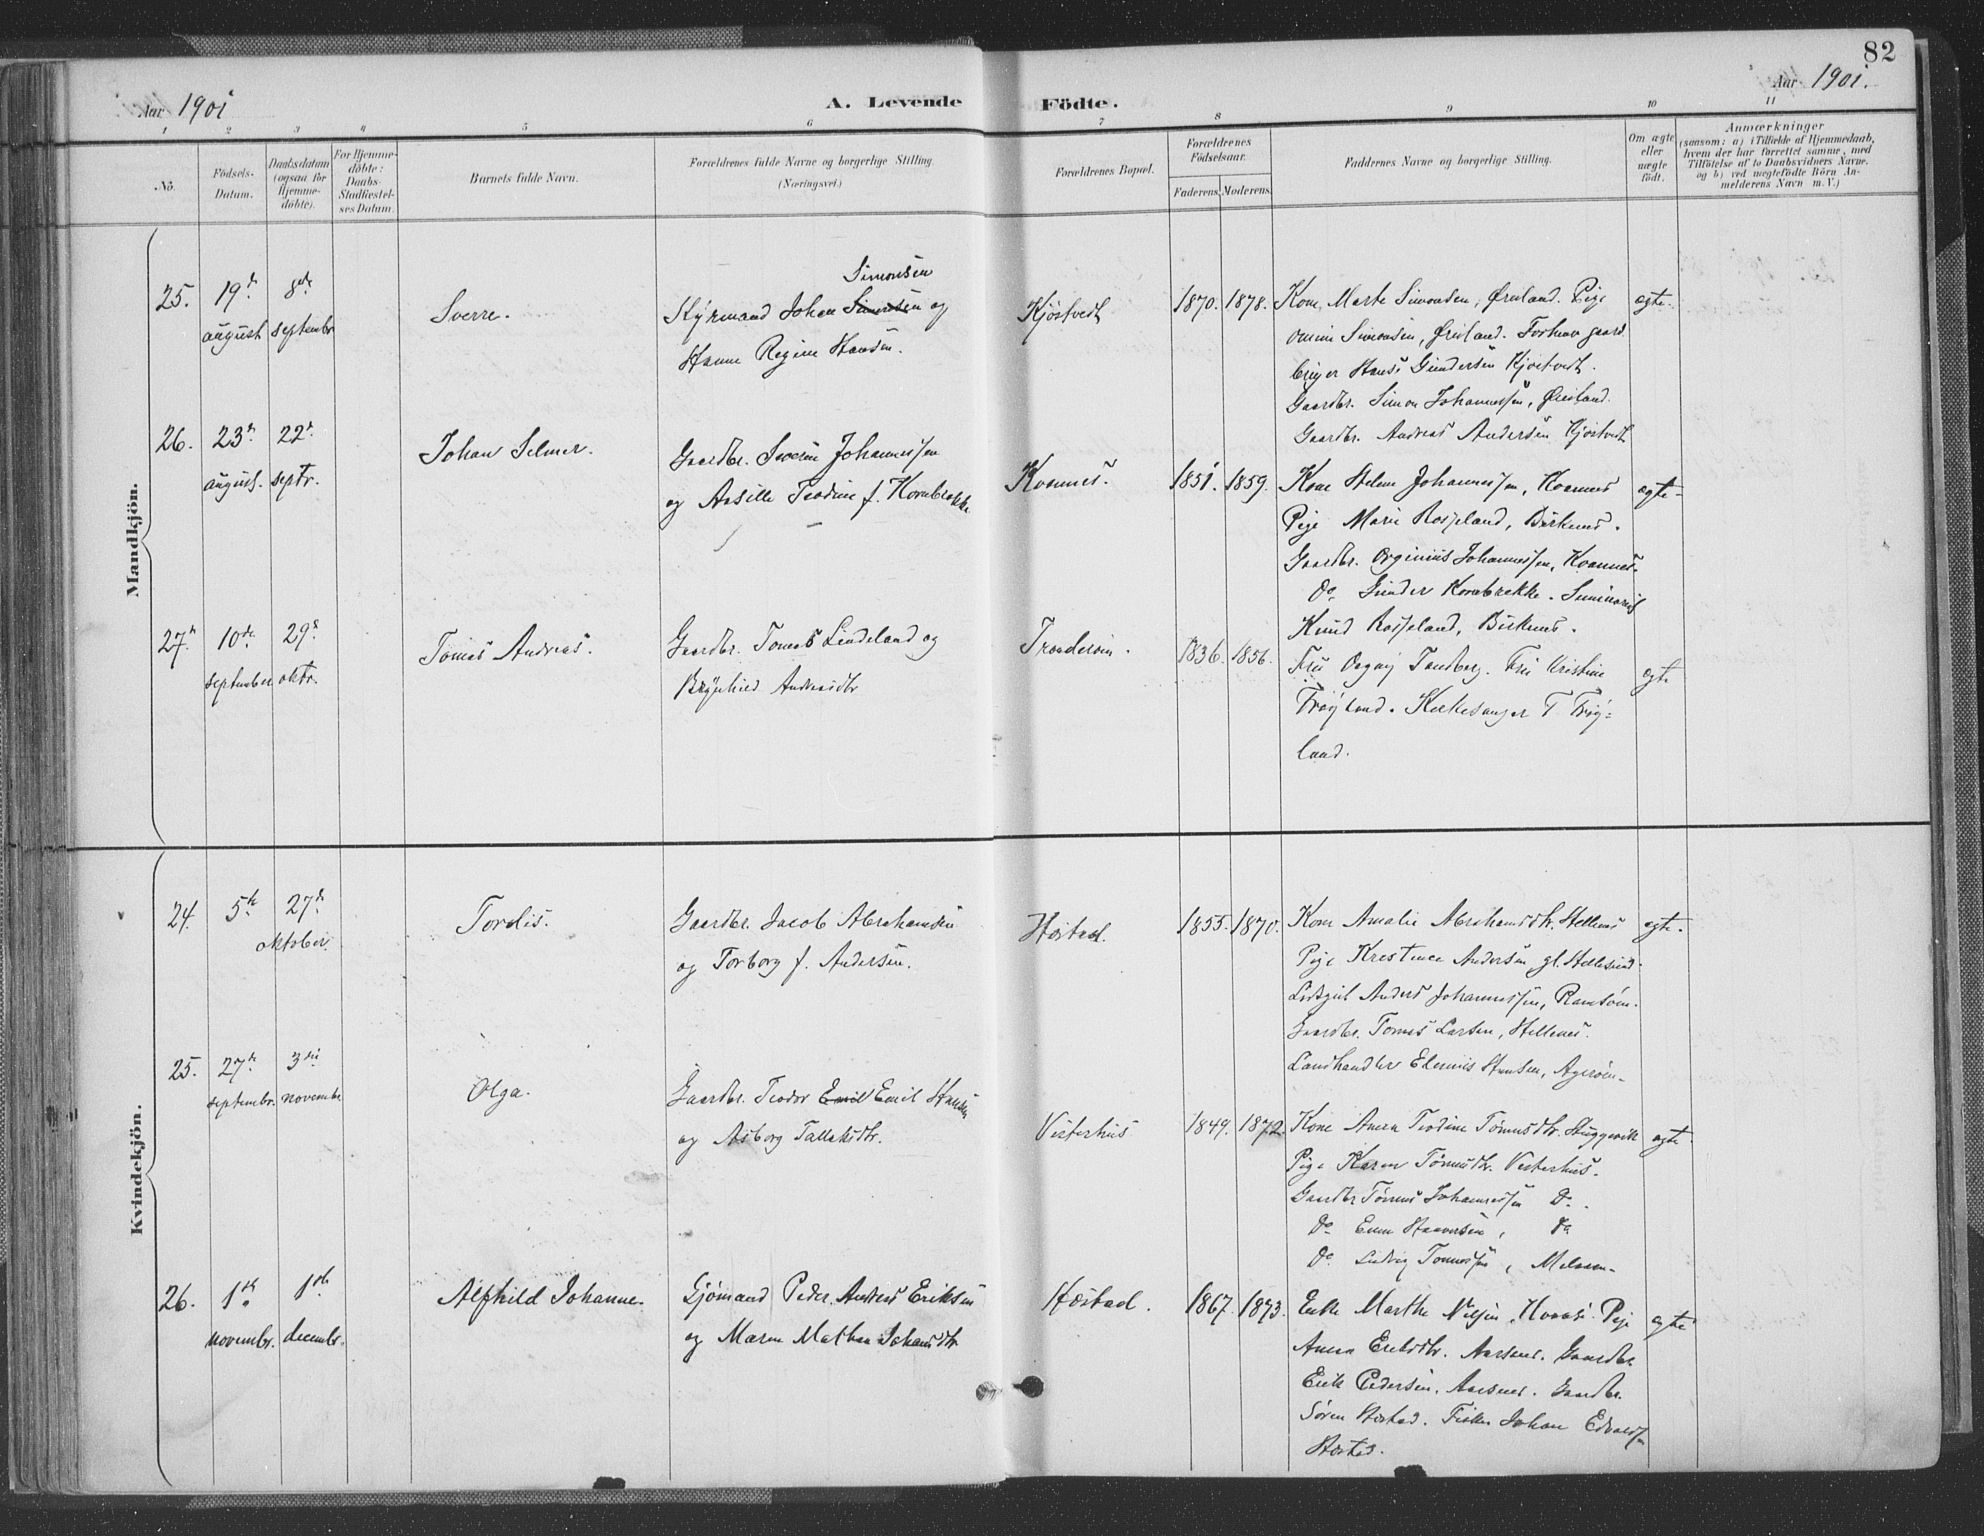 82
Aar 1901
A. Levende
Födte.
Aar 1901.
1 2 3 4 5 6 7 8 9 10 11
No.
Födsels-
Datum.
Daabsdatum
(ogsaa for
Hjemme-
döbte).
For Hjemme-
döbte:
Daabs-
Stadfæstel-
ses Datum
Barnets fulde Navn.
Forældrenes fulde Navne og borgerlige Stilling.
(Næringsvei.)
Forældrenes Bopæl.
Forældrenes
Födselsaar.
Faderens. Moderens.
Faddernes Navne og borgerlige Stilling.
Om ægte
eller
uægte
födt.
Anmærkninger
(saasom: a) i Tilfælde af Hjemmedaab,
hvem der har forrettet samme, med
Tilföielse af to Daabsvidners Navne.
og b) ved uægtefödte Börn An-
melderens Navn m. V.)
Mandkjön.
25.
19de
august
8de
septembr
Sverre.
Simonsen
Styrmand Johan Simonsen og
Hanne Regine Hansen.
Kjöstvedt
1870. 1878.
Kone Marte Simonsen, Øreland. Pige
Simonsen, Øreland. Forhenv gaard
bruger Hans Gundersen Kjöstvedt.
Gaardbr. Simon Johannessen, Øreland.
Gaardbr. Andreas Andersen Kjöstvedt
ægte.
26.
23de
august.
22de
septr.
Johan Selmer.
Gaardbr. Severin Johannessen
og Aasille Teodine f. Kornbrekke
Kvannes.
1851. 1859.
Kone Helene Johannessen, Kvannes
Pige Marie Rosseland, Birkenes.
Gaardbr. Orginius Johannessen, Kvannes.
Do Gunder Kornbrekke. Seminarist
Knud Rosseland, Birkenes.
ægte.
27de
10de
september
29de
oktr.
Tomas Andreas.
Gaardbr. Tomas Lindeland og
Brynhild Andreasdtr
1836. 1856.
Fru Tandberg. Fru Kristine
Fröyland. Kirkesanger T. Fröy-
land.
ægte
Kvindekjön.
24.
5te
27de
oktober.
Tordis.
Gaardbr. Jacob Abrahamsen
og Torborg f. Andersen.
Hæstad.
1855. 1870.
Kone Amalie Abrahamsdtr. Hellenes
Pige Kristence Andersen gl. Hellesund.
Anders Johannessen, Ramsöen.
Gaardbr. Tomas Larsen, Hellenes.
Landhandler Elenius Hansen, Ageröen.
ægte.
25.
27de
septembr.
3die
november
Olga.
Gaardbr. Teodor Emil Emil Hansen
og Asborg Tallaksdtr.
Vesterhus
1849. 1872.
Kone Anna Teodine Tömmesdtr. Skuggevik
Pige Karen Tömmesdtr. Vesterhus.
Gaardbr Tömmes Johannessen Do.
Do Even Haaversen, Do
Do Ludvig Tommessen,
ægte.
26.
1ste
novembr.
1ste
decembr.
Alfhild Johanne.
Sjömand Peder Andreas Eriksen
og Maren Mathea Johansdtr.
Hæstad.
1867. 1873.
Enke Marthe Nilsen, Pige
Anna Eriksdtr. Aarsnes. Gaardbr.
Erik Pedersen. Aarsnes. Gaardbr.
Sören Hæstad. Fisker Johan Edvardsen
Hæstad.
ægte